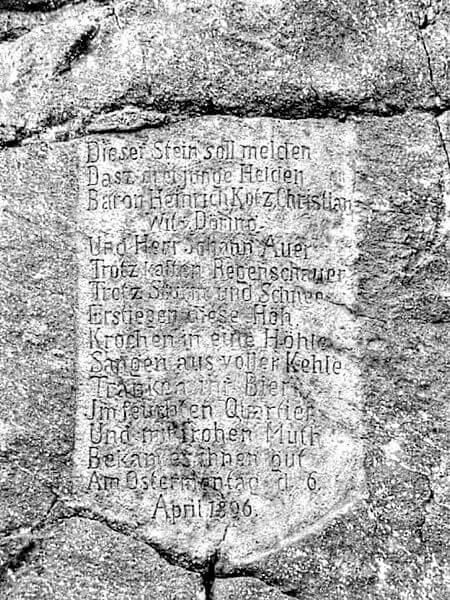 Dieser Stein soll melden
Dasz drei junge Helden
Baron Heinrich Kotz, Christian
Und Herr Johann Auer
Trotz kalten Regenschauer
Trotz Sturm und Schnee
Erstiegen diese Höh,
Krochen in eine Höhle
Sangen aus voller Kehle
Tranken ihr Bier
Jm feuchten Quartier
Und mit frohen Muth
Bekam es ihnen gut
Am Ostermontag d. 6.
April 1896.